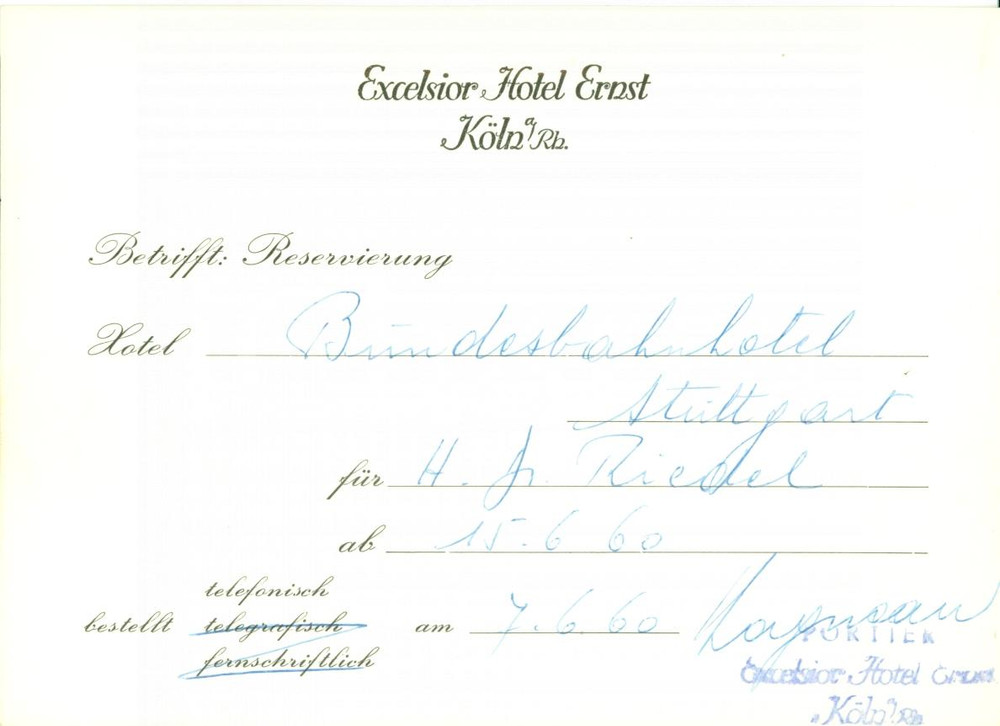 Excelsior Hotel Ernst
Köln a/Rh.
Betrifft: Reservierung
Hotel Bundesbahnhotel
Stuttgart
für H. Riedel
ab 15.6.60
telefonisch
bestellt telegrafisch am 7.6.60
fernschriftlich
PORTIER
Excelsior Hotel Ernst
Köln a/Rh.